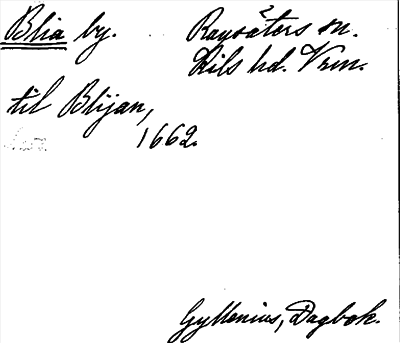 Blia by. Ransäters sn.
Kils hd. Vrm.
til Blijan,
1662.
Gyllenius, Dagbok.